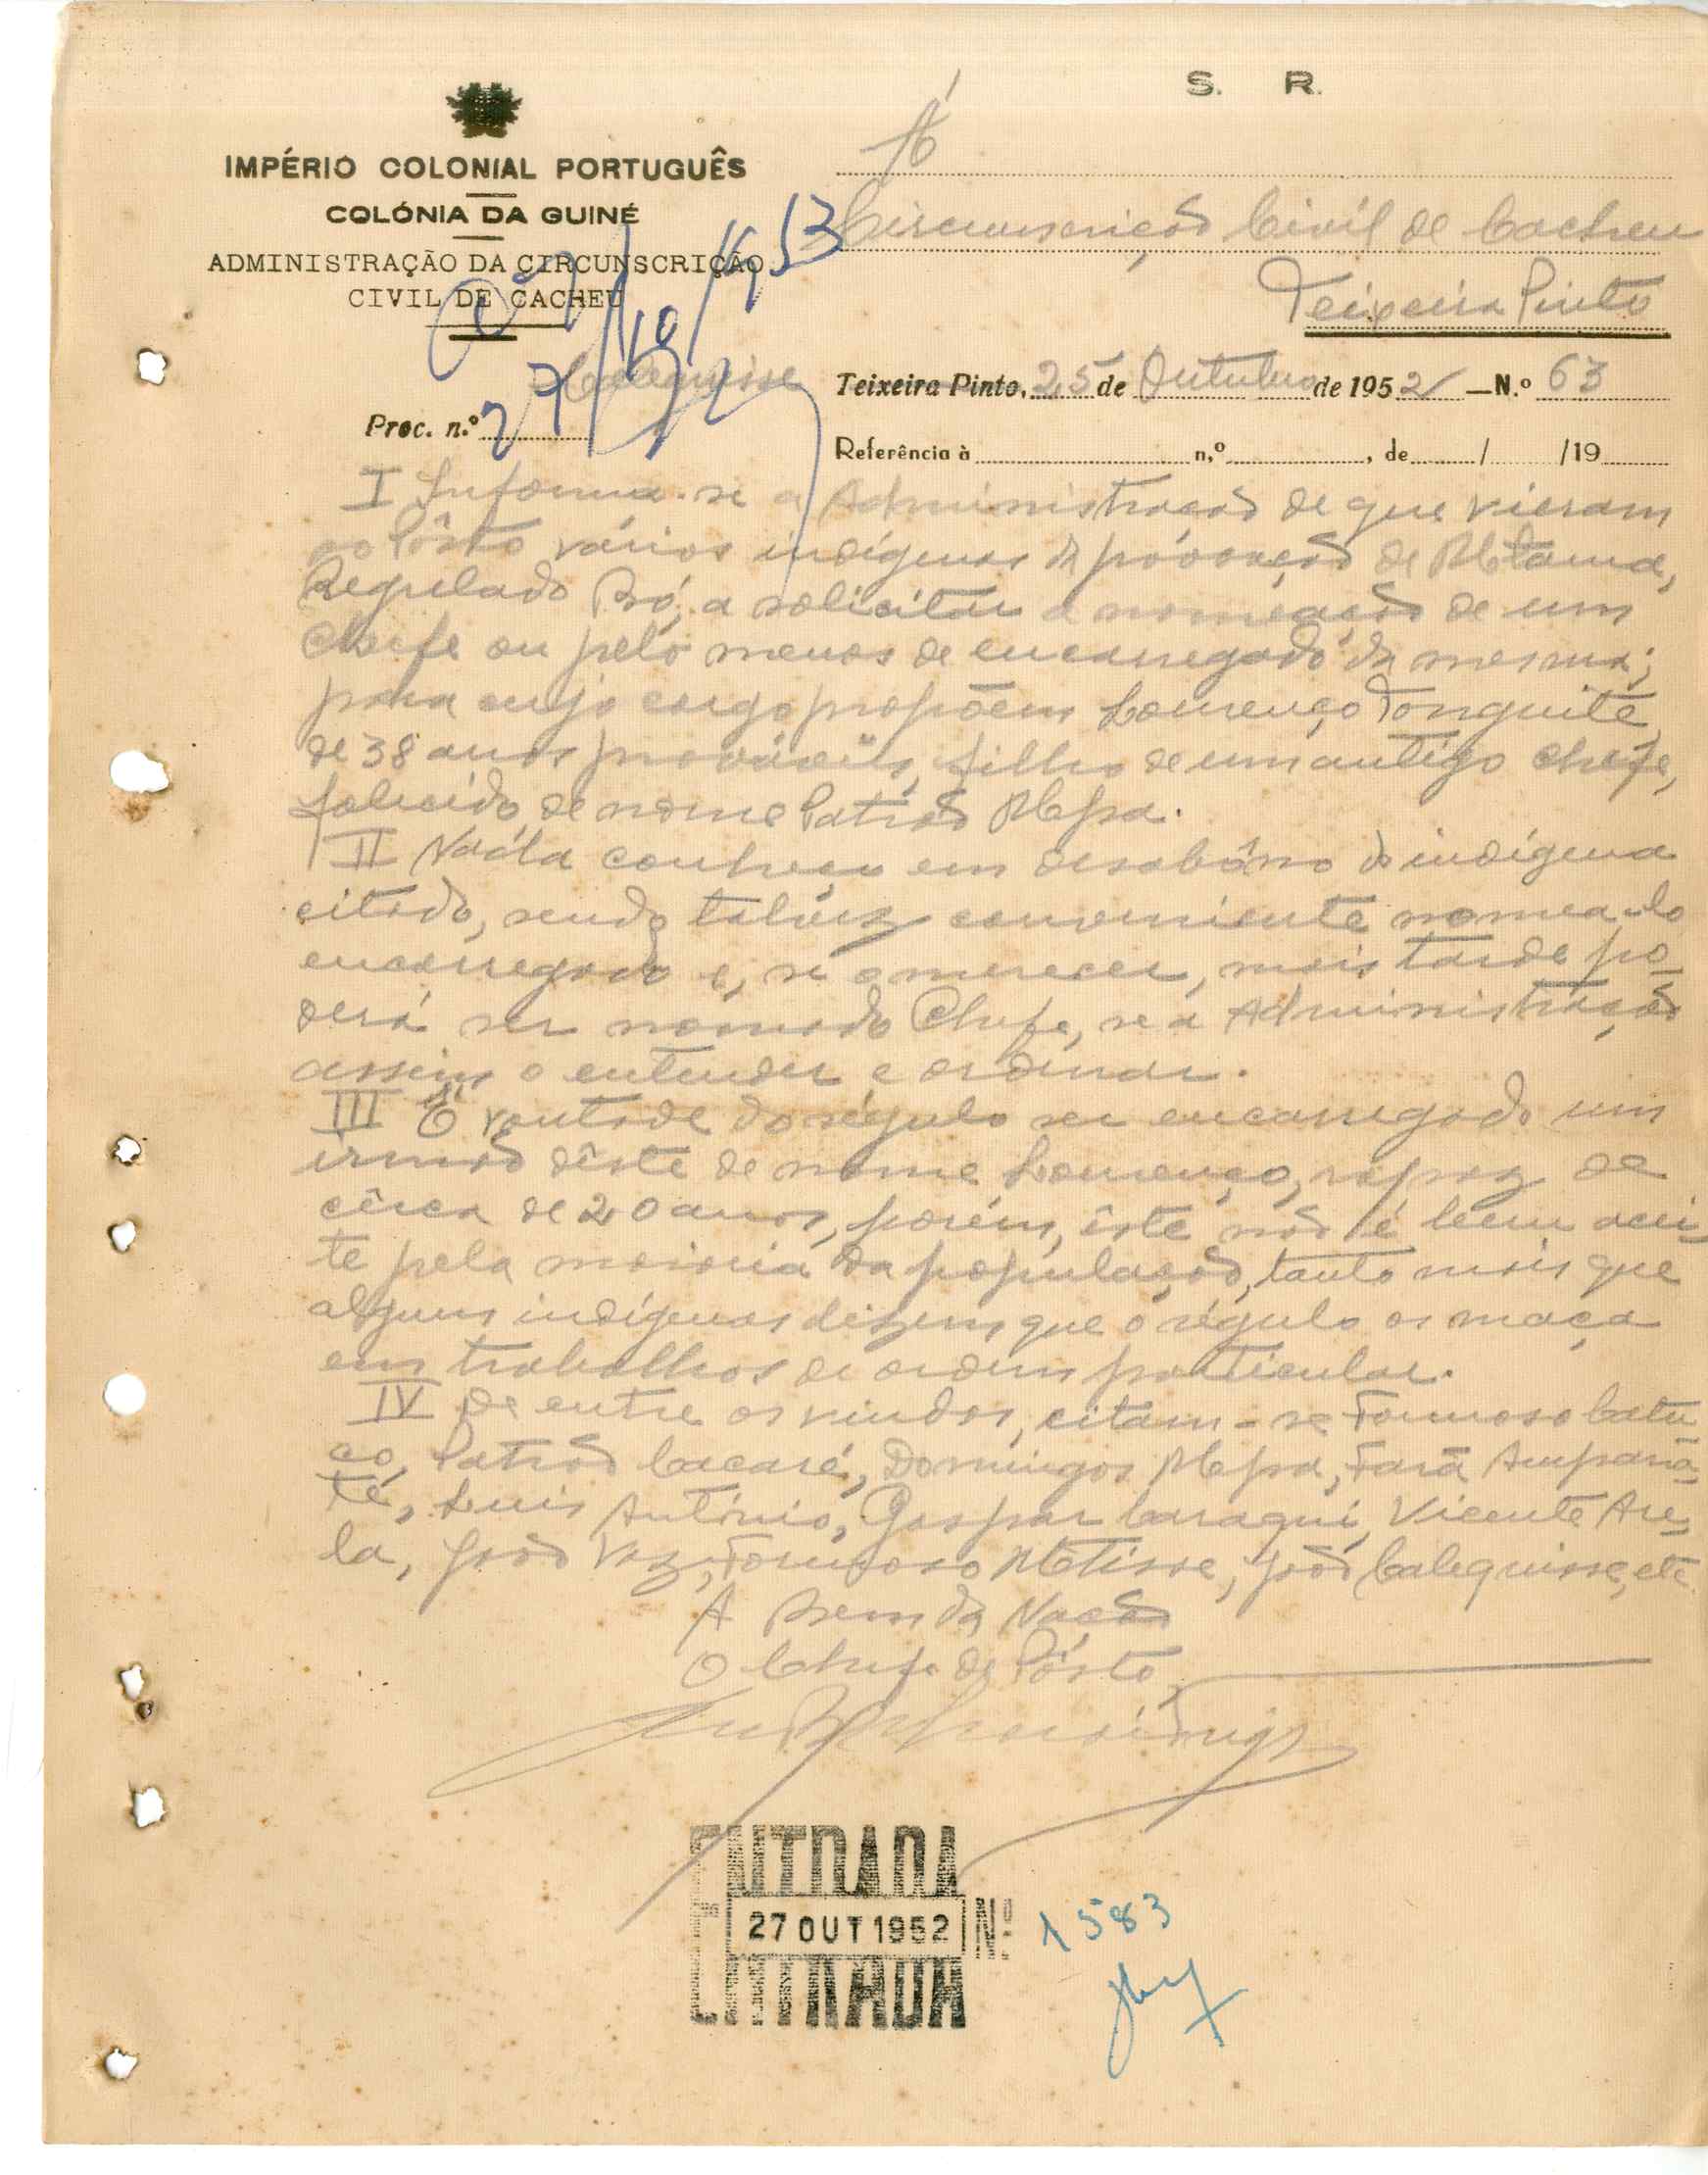 S. R.
IMPÉRIO COLONIAL PORTUGUÊS
COLÓNIA DA GUINÉ
ADMINISTRAÇÃO DA CIRCUNSCRIÇÃO
CIVIL DE CACHEU
À
Circunscrição Civil de Cacheu
Teixeira Pinto
Calequisse
Teixeira Pinto, 25 de Outubro de 1952 — N.º 63
Proc. n.º
27/10/52
Referência à n.º , de / /19
I Informa-se a Administração de que vieram
ao Pôsto vários indígenas da povoação de
Regulado Bó, a solicitar a nomeação de um
Chefe ou pelo menos de encarregado da mesma;
para cujo cargo propõem Lourenço Tonquite,
de 38 anos prováveis, filho de um antigo chefe,
falecido, de nome Patrão Mepa.
II Nada conheço em desabôno do indígena
citado, sendo talvez conveniente nomea-lo
encarregado e, se o merecer, mais tarde po-
derá ser nomeado Chefe, se a Administração
assim o entender e ordenar.
III É vontade do régulo ser encarregado um
irmão dêste de nome Lourenço, rapaz de
cêrca de 20 anos, porém, êste não é bem acei-
te pela maioria da população, tanto mais que
alguns indígenas dizem que o régulo os maça
em trabalhos de ordem particular.
IV De entre os vindos, citam-se Formoso Catu-
co, Patrão Cacaré, Domingos Mepa, Fará
té, Luis António, Gaspar Caraqui, Vicente Are-
la, João Vaz, Formoso Metisse, João Calequisse, etc.
A Bem da Nação
O Chefe de Pôsto
ENTRADA
27 OUT 1952 Nº 1583
ENTRADA